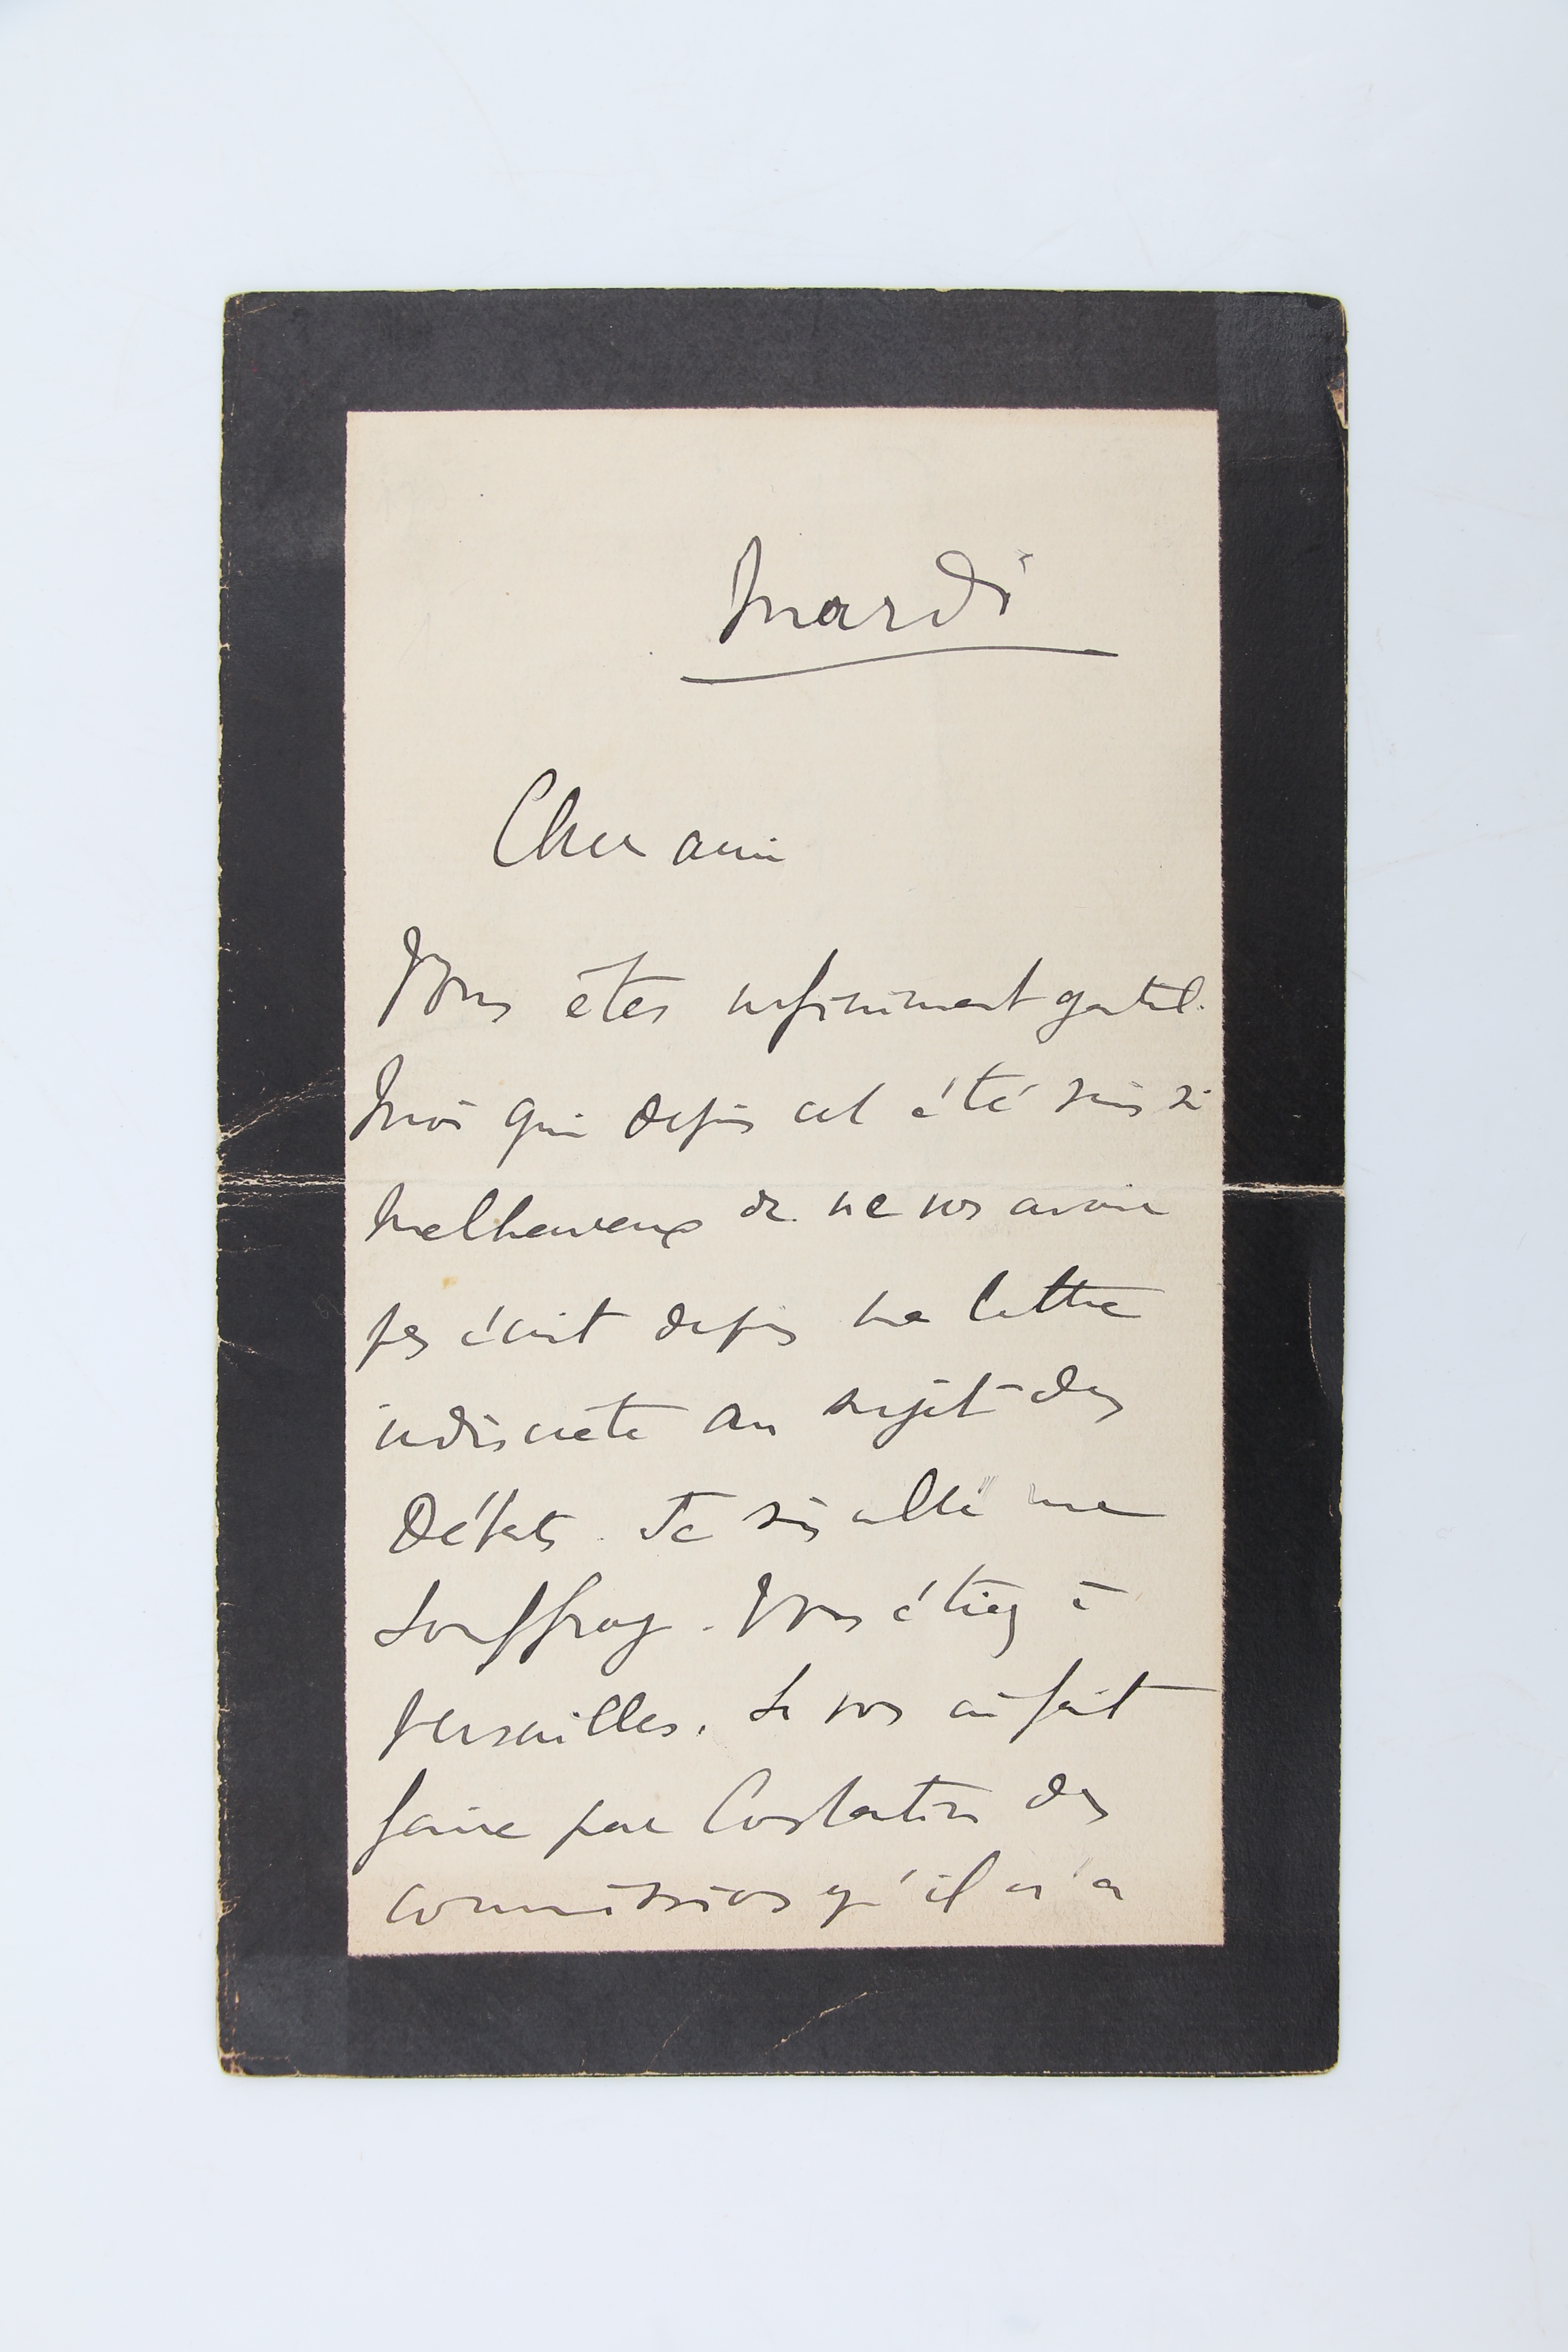 Mardi
Cher ami
Vous êtes infiniment gentil.
Moi qui depuis cet été suis si
malheureux de ne vos avoir
pas écrit depuis ma lettre
indiscrète au sujet des
Débats. Je suis allé me
Vous étiez à
Versailles. Je vos ai fait
faire par Constantin des
commissions qu'il n'a